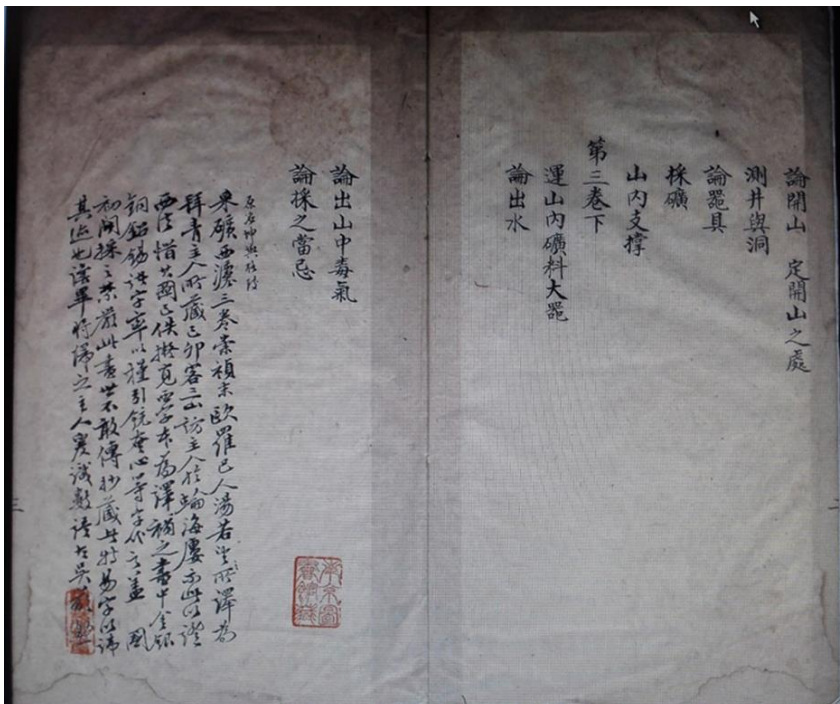 論開山 定開山之處
測井與洞
論噐具
採礦
山内支撐
第三卷下
運山内礦料大噐
論出水
論出山中毒氣
論採之當忌
原名坤輿格致
泉礦西灋三卷崇禎末歐羅巴人湯若望所譯為
主人所藏己卯客三山訪主人於海廔示此以證
西法惜其圖已佚擬覓西字本為譯補之書中金銀
銅鉛錫諸字率以引銃心等字代之蓋 國
初開採之禁嚴此書世不敢傳抄藏者特易字以諱
其迹也讀畢將歸之主人爰識數語古吳